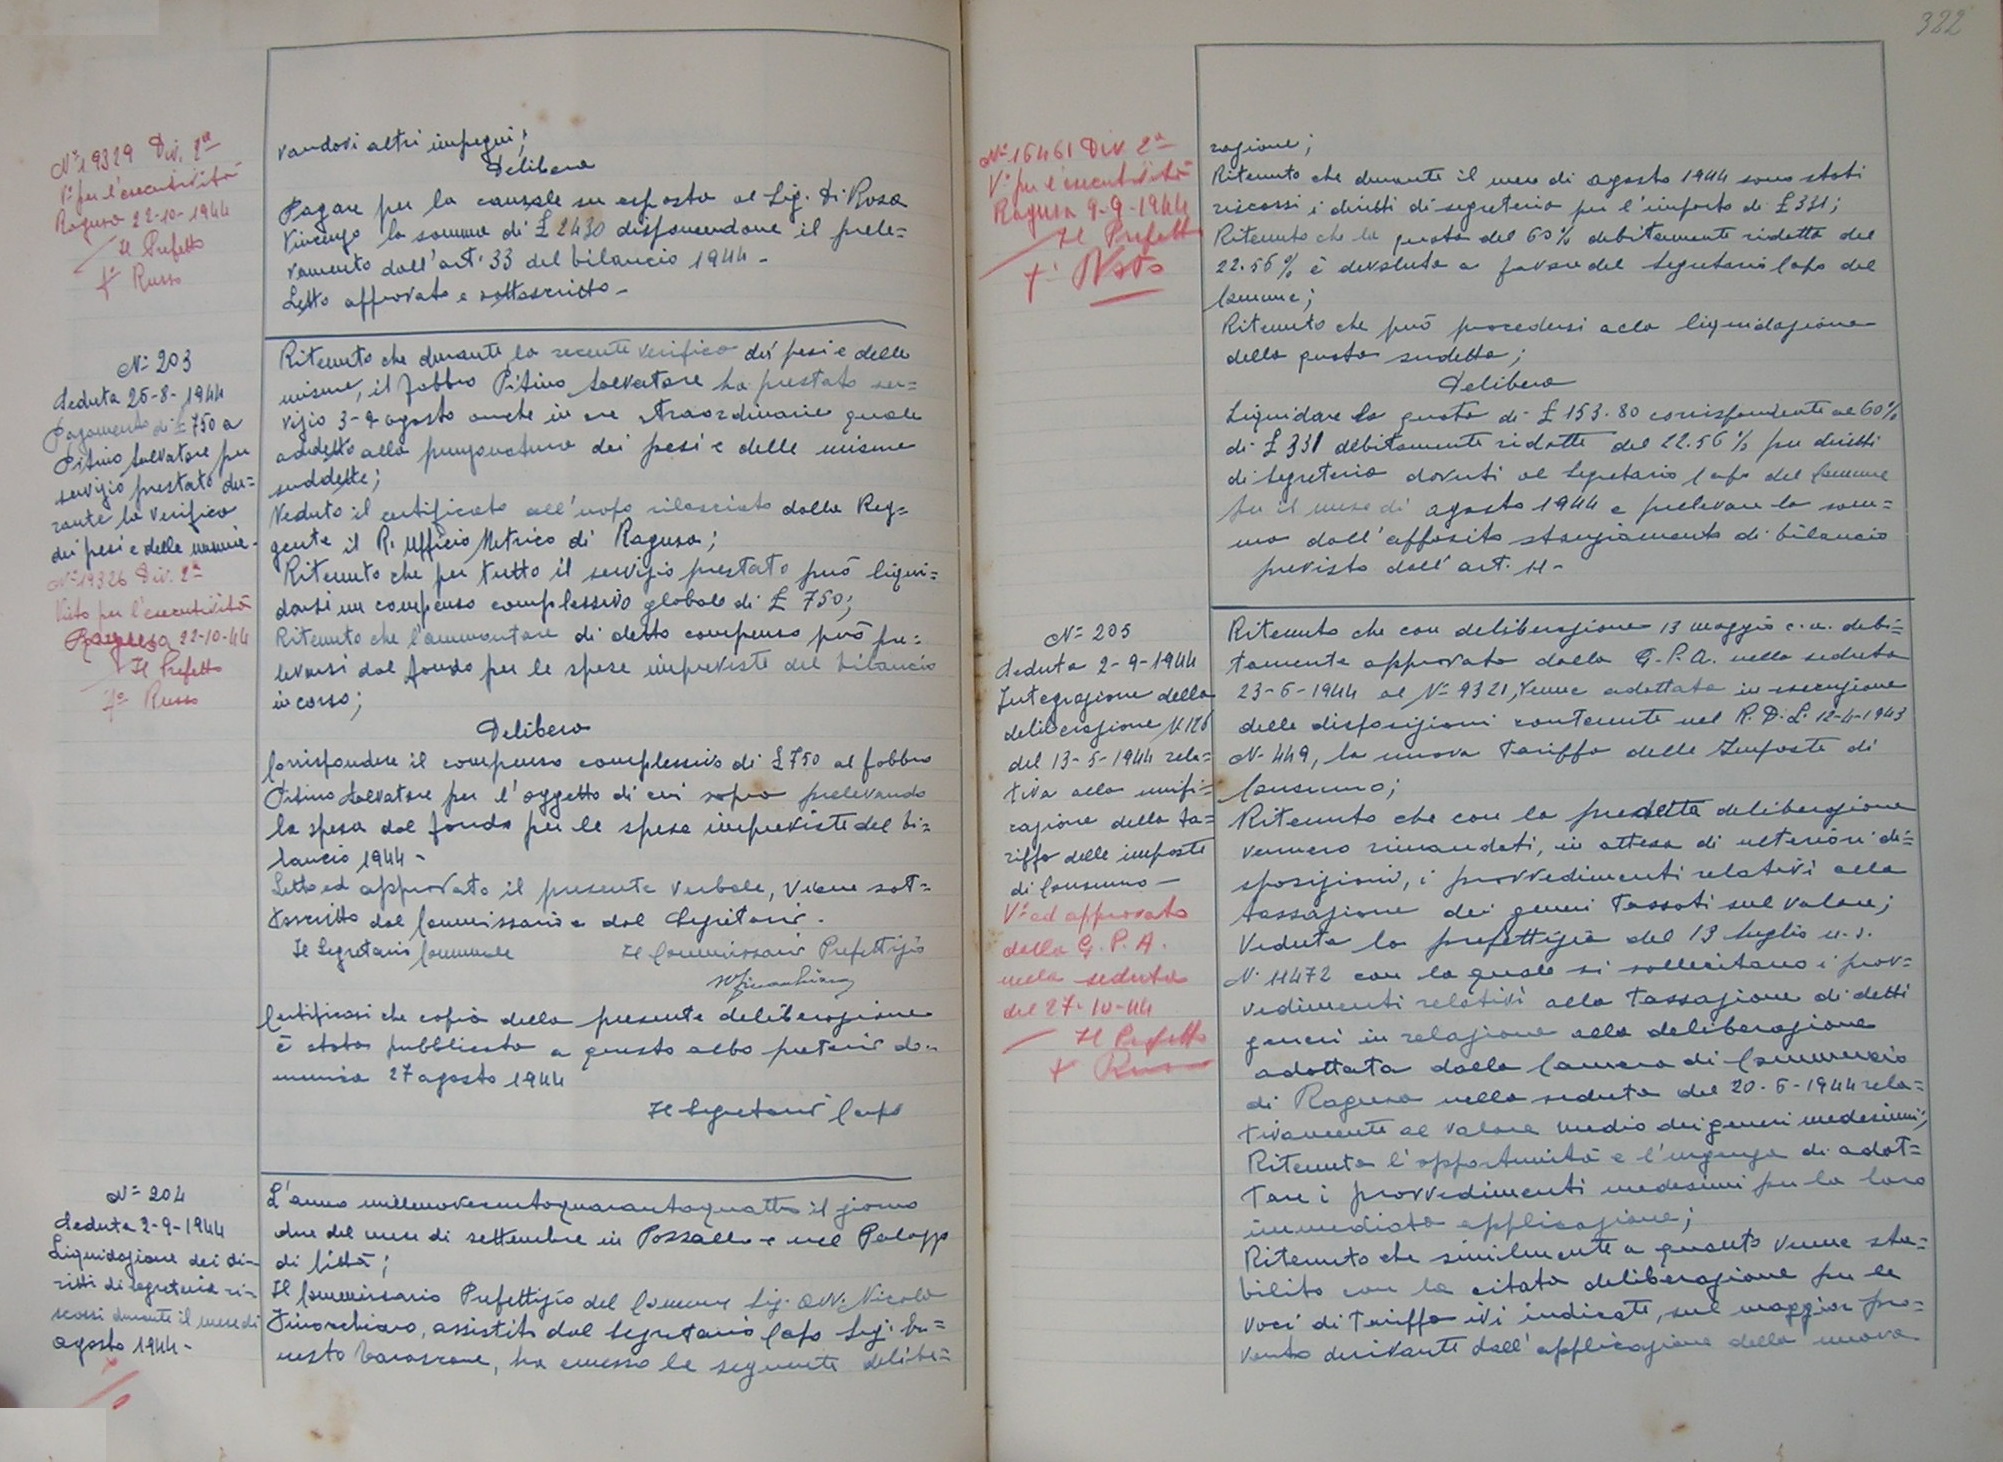 N. 19329 Div. 2ª
Vº per l'esecutività
Ragusa 22-10-1944
Il Prefetto
fº Russo
vandosi altri impegni;
Delibera
Pagare per la causale su esposta al Sig. Di Rosa
Vincenzo la somma di £ 2430 disponendone il prele=
vamento dall'art. 33 del bilancio 1944 -
Letto approvato e sottoscritto -
Nº 203
Seduta 26-8-1944
Pagamento di £ 750 a
Pitino Salvatore per
servizio prestato du=
rante la verifica
dei pesi e delle misure -
Nº 19326 Div. 2ª
Visto per l'esecutività
Ragusa 22-10-44
Il Prefetto
fº Russo
Ritenuto che durante la recente verifica dei pesi e delle
misure, il fabbro Pitino Salvatore ha prestato ser=
vizio 3-9 agosto anche in ore straordinarie quale
addetto alla punzonatura dei pesi e delle misure
suddette;
Veduto il certificato all'uopo rilasciato dalla Reg=
gente il R. Ufficio Metrico di Ragusa;
Ritenuto che per tutto il servizio prestato può liqui=
darsi un compenso complessivo globale di £ 750;
Ritenuto che l'ammontare di detto compenso può pre=
levarsi dal fondo per le spese impreviste del bilancio
in corso;
Delibera
Corrispondere il compenso complessivo di £ 750 al fabbro
Pitino Salvatore per l'oggetto di cui sopra prelevando
la spesa dal fondo per le spese impreviste del bi=
lancio 1944 -
Letto ed approvato il presente verbale, viene sot=
toscritto dal Commissario e dal Segretario.
Il Segretario Comunale Il Commissario Prefettizio
Certificasi che copia della presente deliberazione
è stata pubblicata a questo albo pretorio do=
menica 27 agosto 1944
Il Segretario Capo
Nº 204
Seduta 2-9-1944
Liquidazione dei di=
ritti di segreteria ri=
scossi durante il mese di
agosto 1944 -
L'anno millenovecentoquarantaquattro il giorno
due del mese di settembre in Pozzallo e nel Palazzo
di Città;
Il Commissario Prefettizio del Comune Sig. Avv. Nicola
Finocchiaro, assistito dal Segretario Capo Sig. Er=
nesto, ha emesso la seguente delibe=
322
Nº 16461 Div. 2ª
Vº per l'esecutività
Ragusa 9-9-1944
Il Prefetto
razione;
Ritenuto che durante il mese di agosto 1944 sono stati
riscossi i diritti di segreteria per l'importo di £ 331;
Ritenuto che la quota del 60% debitamente ridotta del
22.56% è devoluta a favore del Segretario Capo del
Comune;
Ritenuto che può procedersi alla liquidazione
della quota sudetta;
Delibera
Liquidare la quota di £ 153.80 corrispondente al 60%
di £ 331 debitamente ridotte del 22.56% per diritti
di Segreteria dovuti al Segretario Capo del Comune
per il mese di agosto 1944 e prelevare la som=
ma dall'apposito stanziamento di bilancio
previsto dall'art. 11 -
Nº 205
Seduta 2-9-1944
Integrazione della
deliberazione N. 126
del 13-5-1944 rela=
tiva alla unifi=
cazione della ta=
riffa delle imposte
di Consumo -
Vº ed approvato
dalla G. P. A.
nella seduta
del 27-10-44
Il Prefetto
fº Russo
Ritenuto che con deliberazione 13 maggio c.a. debi=
tamente approvata dalla G. P. A. nella seduta
23-6-1944 al Nº 9321, venne adottata in esecuzione
delle disposizioni contenute nel R. D. L. 12-4-1943
Nº 449, la nuova tariffa delle Imposte di
Consumo;
Ritenuto che con la predetta deliberazione
vennero rimandati, in attesa di ulteriori di=
sposizioni, i provvedimenti relativi alla
tassazione dei generi tassati sul valore;
Veduta la prefettizia del 13 luglio u.s.
N. 11472 con la quale si sollecitano i prov=
vedimenti relativi alla tassazione di detti
generi in relazione alla deliberazione
adottata dalla Camera di Commercio
di Ragusa nella seduta del 20-6-1944 rela=
tivamente al valore medio dei generi medesimi;
Ritenuta l'opportunità e l'urgenza di adot=
tare i provvedimenti medesimi per la loro
immediata applicazione;
Ritenuto che similmente a quanto venne sta=
bilito con la citata deliberazione per le
voci di tariffa ivi indicate, sul maggior pro=
vento derivante dall'applicazione della nuova